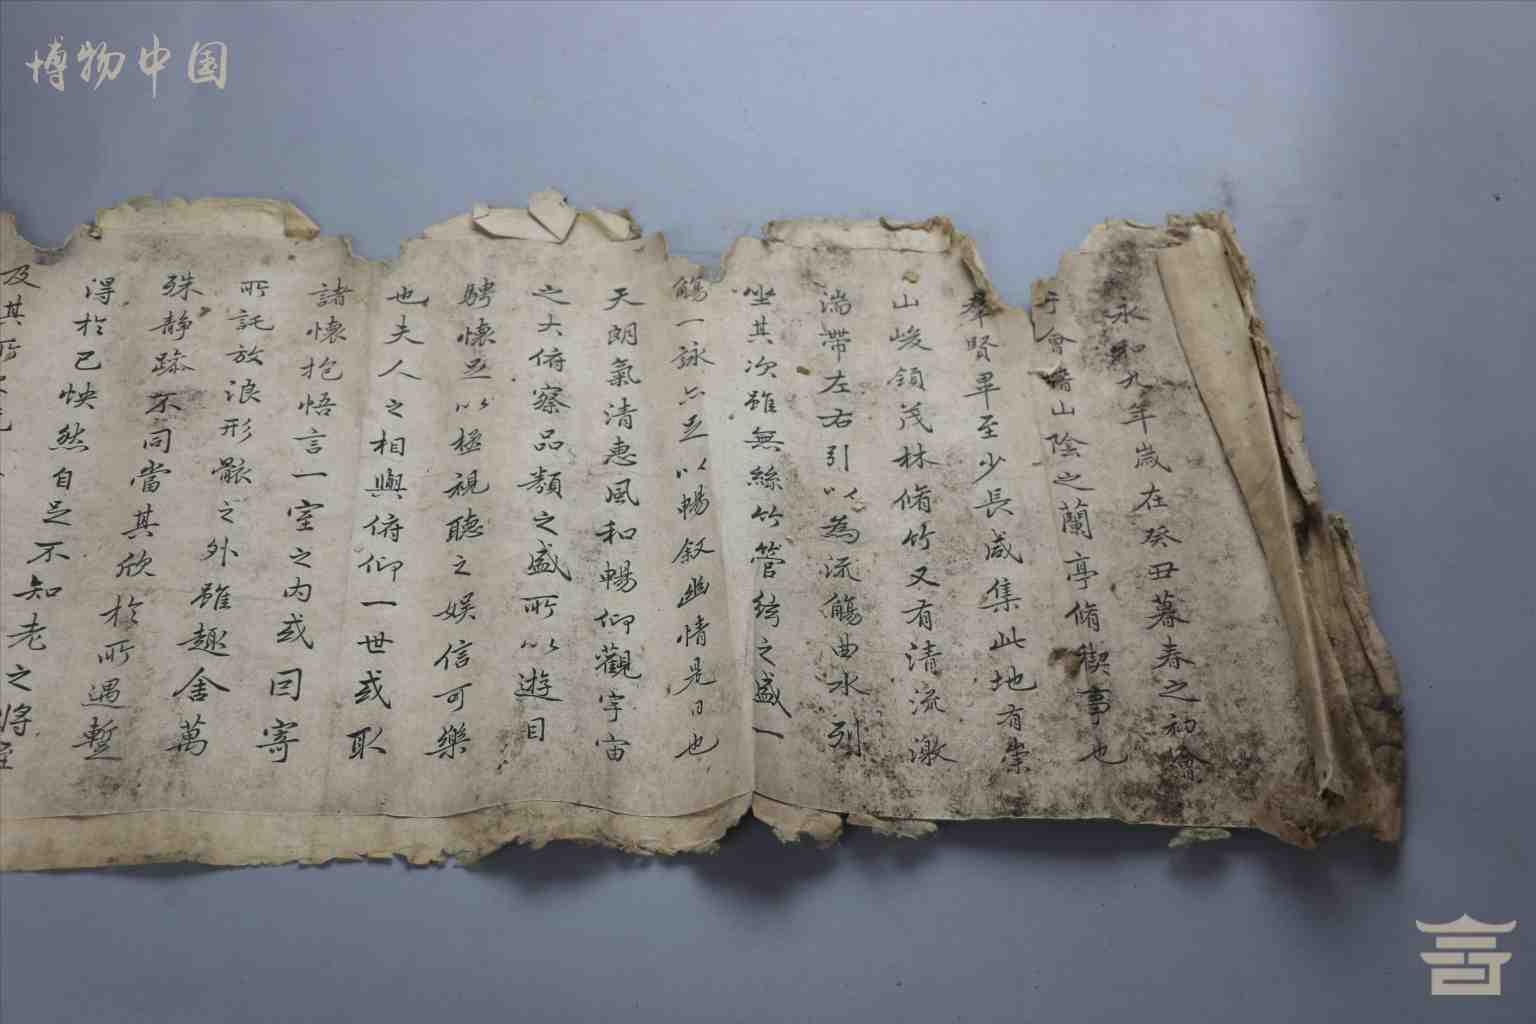 博物中国
永和九年歲在癸丑暮春之初會
于會稽山陰之蘭亭脩禊事也
羣賢畢至少長咸集此地有崇
山峻領茂林脩竹又有清流激
湍帶左右引以為流觴曲水列
坐其次雖無絲竹管絃之盛一
觴一詠亦足以暢叙幽情是日也
天朗氣清惠風和暢仰觀宇宙
之大俯察品類之盛所以遊目
騁懷足以極視聽之娛信可樂
也夫人之相與俯仰一世或取
諸懷抱悟言一室之內或因寄
所託放浪形骸之外雖趣舍萬
殊静躁不同當其欣於所遇暫
得於己怏然自足不知老之將至
及其所